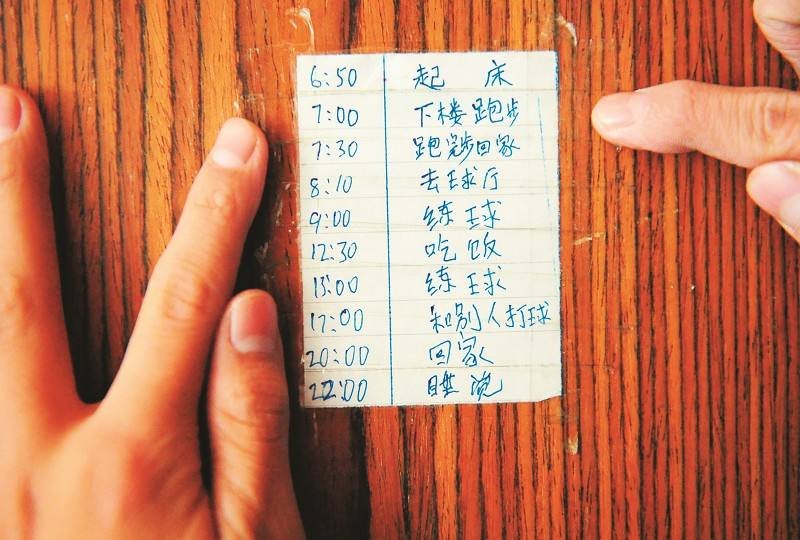 6:50 起床
7:00 下楼跑步
7:30 跑完步回家
8:10 去球厅
9:00 练球
12:30 吃饭
练球
17:00 和别人打球
20:00 回家
22:00 睡觉